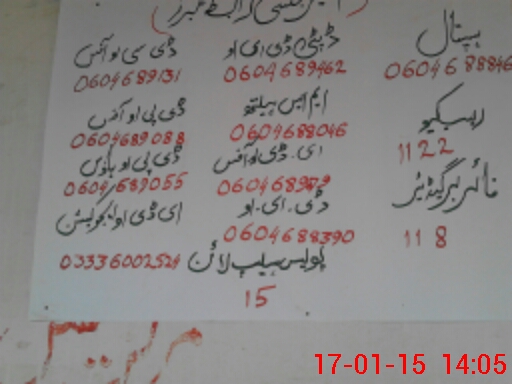 ایمرجنسی رابطہ نمبرز
ہسپتال
ڈپٹی ڈی ای او
ڈی سی او آفس
0604689462
0604689131
ریسکیو
ایم ایس ہیلتھ
ڈی پی او آفس
1122
0604688046
0604689088
فائر بریگیڈیئر
ای۔ڈی او آفس
ڈی پی او ہاؤس
118
0604689055
ڈی۔ای۔او
ای ڈی او ایجوکیشن
0604688390
پولیس ہیلپ لائن
03336002524
15
17-01-15 14:05